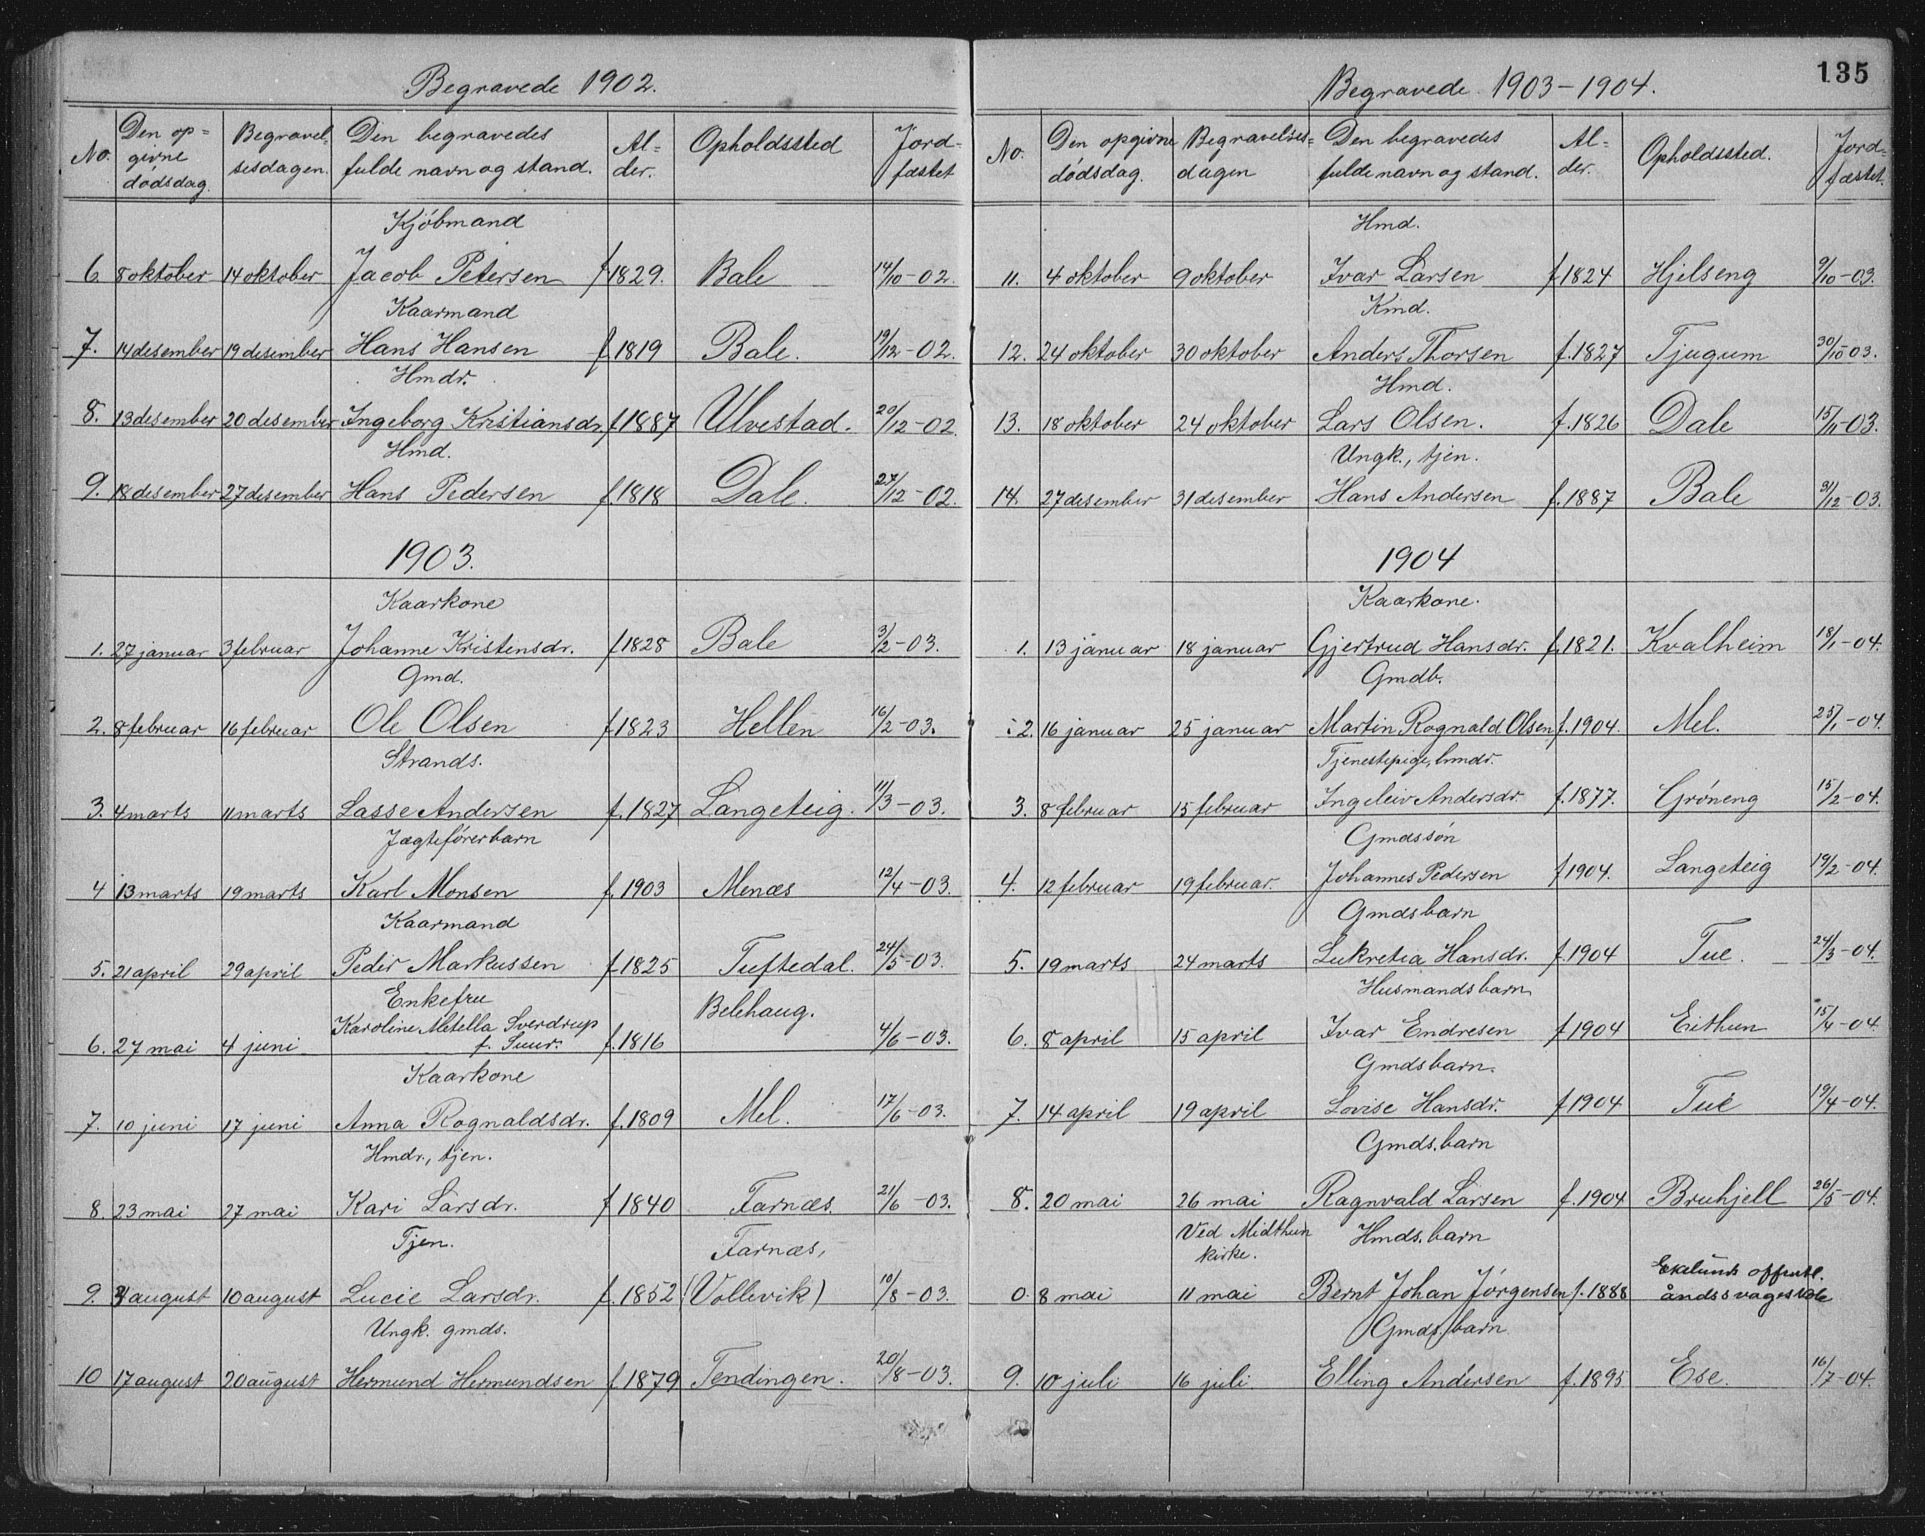 Begravede 1902.
No. Den opgivne dødsdag. Begravelsesdagen. Den begravedes fulde navn og stand. Alder. Opholdssted Jordfæstet
Kjøbmand
6. 8 oktober 14 oktober Jacob Petersen f 1829. Bale 14/10-02.
Kaarmand
7. 14 desember 19 desember Hans Hansen f 1819 Bale. 19/12-02.
Hmdr.
8. 13 desember 20 desember Ingeborg Kristiansdr. f 1887 Ulvestad. 20/12-02.
Hmd.
9. 18 desember 27 desember Hans Pedersen f 1818 Dale. 27/12-02.
1903.
Kaarkone
1. 27 januar 3 februar Johanne Kristensdr. f 1828 Bale 3/2-03.
Gmd.
2. 8 februar 16 februar Ole Olsen f 1823 Hellen 16/2-03.
Strands.
3. 4 marts 11 marts Lasse Andersen f. 1827 Langeteig. 11/3-03.
Jægteförerbarn
4 13 marts 19 marts Karl Monsen f. 1903 Menæs 12/4-03.
Kaarmand
5. 21 april 29 april Peder Markussen f 1825 Tuftedal. 24/5-03
Enkefru
6. 27 mai 4 juni Karoline Metella Sverdrup f. Suur. f. 1816 Belehaug. 4/6-03.
Kaarkone
7. 10 juni 17 juni Anna Rognaldsdr. f. 1809 Mel. 17/6-03.
Hmdr., tjen.
8. 23 mai 27 mai Kari Larsdr. f 1840 Farnæs. 21/6-03.
Tjen.
9. 3 august 10 august Lucie Larsdr. f. 1852 Farnæs, (Vollevik) 10/8-03.
Ungk. gmds.
10 17 august 20 august Hermund Hermundsen f. 1879 Tendingen. 20/8-03.
135
Begravede 1903-1904.
No. Den opgivne dødsdag. Begravelsesdagen Den begravedes fulde navn og stand. Alder. Opholdssted. Jordfæstet.
Hmd.
11. 4 oktober 9 oktober Ivar Larsen f 1824 Hjelseng 9/10-03.
Kmd.
12. 24 oktober 30 oktober Anders Thorsen f. 1827 Tjugum 30/10-03.
Hmd.
13. 18 oktober 24 oktober Lars Olsen. f. 1826 Dale 15/11-03.
Ungk., tjen.
14. 27 desember 31 desember Hans Andersen f. 1887 Bale 31/12-03.
1904
Kaarkone.
1. 13 januar 18 januar Gjertrud Hansdr. f. 1821. Kvalheim 18/1-04.
Gmdb.
2. 16 januar 25 januar Martin Rognald Olsen f. 1904. Mel. 25/1-04.
Tjenestepige, hmdr.
3. 8 februar 15 februar Ingeleiv Andersdr. f. 1877. Grøneng 15/2-04.
Gmdssøn
4. 12 februar 19 februar. Johannes Pedersen f 1904. Langeteig 19/2-04.
Gmdsbarn
5. 19 marts 24 marts Lukretia Hansdr. f. 1904 Tue. 24/3-04.
Husmandsbarn
6. 8 april 15 april Ivar Endresen f 1904 Eithun 15/4-04.
Gmdsbarn.
7. 14 april 19 april Lovise Hansdr. f 1904 Tue 19/4-04.
Gmds.barn
8. 20 mai 26 mai Ragnvald Larsen f. 1904 Bruhjell 26/5-04.
Ved Midthun kirke. Hmds.barn
0. 8 mai 11 mai Bernt Johan Jørgensen f. 1888 Eklunds offentl. åndssvageskole
Gmds.barn
9. 10 juli 16 juli Elling Andersen f. 1895 Ese. 16/7-04.